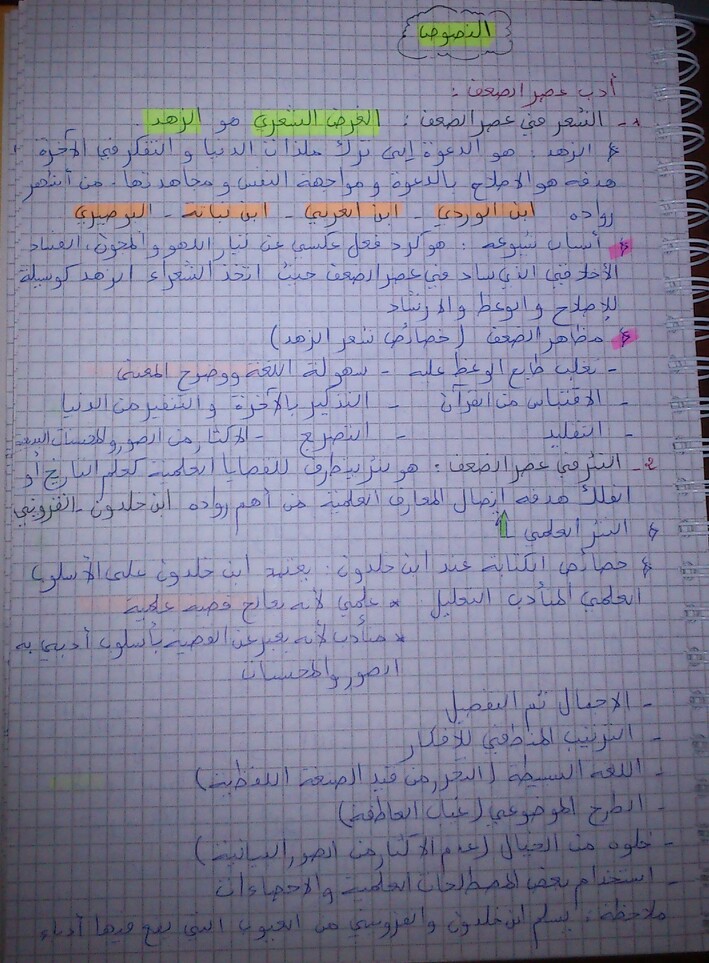 النصوص
أدب عصر الضعف :
1- الشعر في عصر الضعف : الغرض الشعري هو الزهد .
* الزهد : هو الدعوة إلى ترك ملذات الدنيا و التفكر في الآخرة
هدفه هو الاصلاح بالدعوة و مواجهة النفس و مجاهدتها . من أشهر
رواده ابن الوردي - ابن العربي - ابن نباتة - البوصيري
* أسباب شيوعه : هو كرد فعل عكسي عن تيار اللهو والمجون ، الفساد
الأخلاقي الذي ساد في عصر الضعف حيث اتخذ الشعراء الزهد كوسيلة
للإصلاح و الوعظ والارشاد
* مظاهر الضعف ( خصائص شعر الزهد )
- تغلب طابع الوعظ عليه - سهولة اللغة ووضوح المعنى
- الاقتباس من القرآن - التذكير بالآخرة والتنفير من الدنيا
- التقليد - التصريع - الاكثار من الصور والمحسنات البديعية
2- النثر في عصر الضعف : هو نثر يتطرق للقضايا العلمية كعلم التاريخ أو
الفلك هدفه إيصال المعارف العلمية من أهم رواده ابن خلدون - القزويني
* النثر العلمي
* خصائص الكتابة عند ابن خلدون : يعتمد ابن خلدون على الأسلوب
العلمي المتأدب التعليل * علمي لأنه يعالج قضية علمية
* متأدب لأنه يعبر عن القضية بأسلوب أدبي به
الصور والمحسنات
- الاجمال ثم التفصيل
- الترتيب المنطقي للأفكار
- اللغة البسيطة ( التحرر من قيد الصنعة اللفظية )
- الطرح الموضوعي ( غياب العاطفة )
- خلوه من الخيال ( عدم الاكثار من الصور البيانية )
- استخدام بعض المصطلحات العلمية والاحصاءات
ملاحظة : يسلم ابن خلدون والقزويني من العيوب التي يقع فيها أدباء